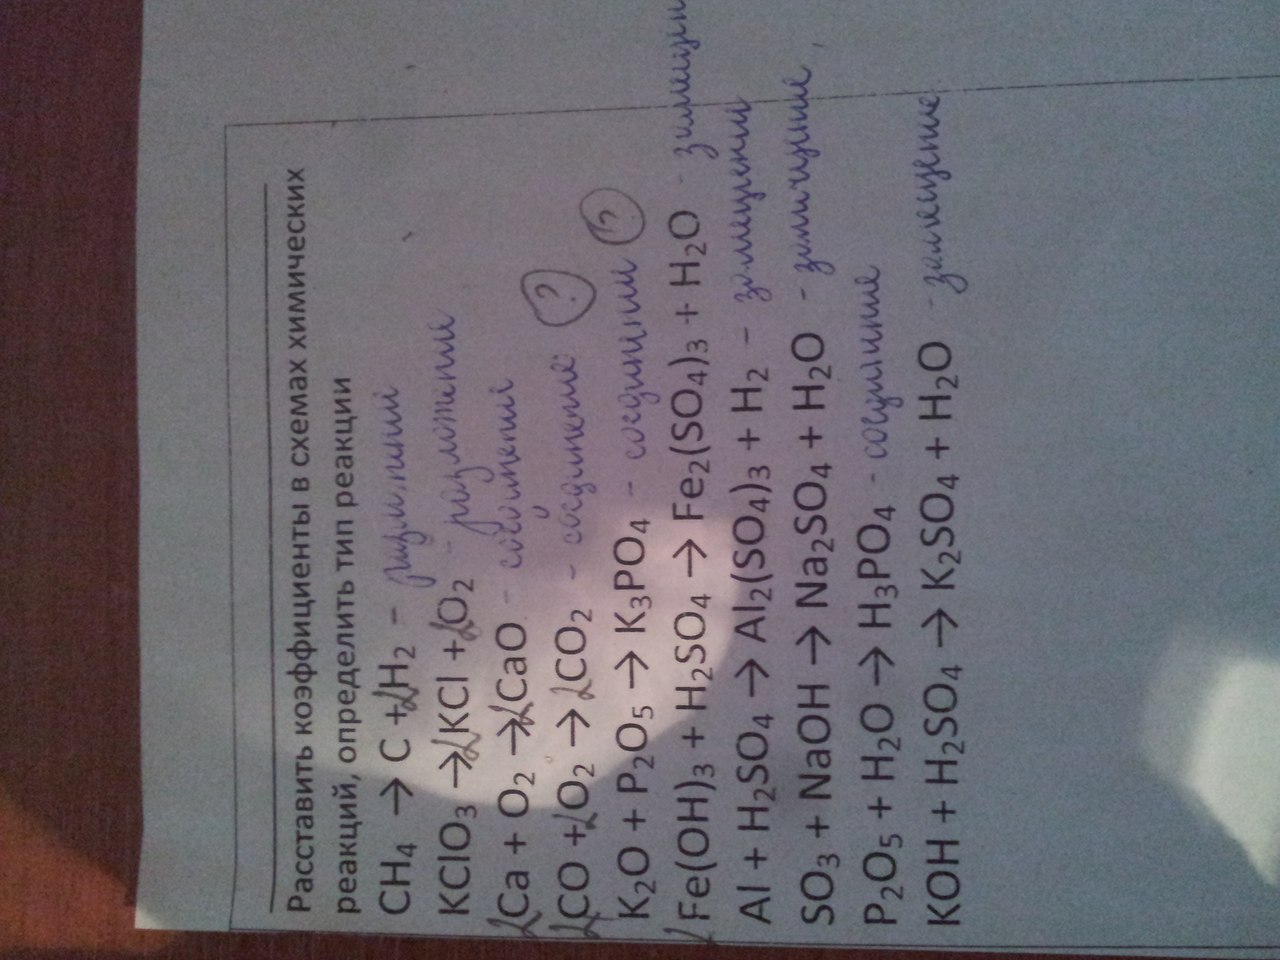 Расставить коэффициенты в схемах химических
реакций, определить тип реакции
CH₄ → C + 2H₂ -
KClO₃ → 2KCl + 2O₂ - разложение
2Ca + O₂ → 2CaO - соединение
2CO + 2O₂ → 2CO₂ - соединение ?
K₂O + P₂O₅ → K₃PO₄ - соединение ?
2Fe(OH)₃ + H₂SO₄ → Fe₂(SO₄)₃ + H₂O - замещен
Al + H₂SO₄ → Al₂(SO₄)₃ + H₂ - замещении
SO₃ + NaOH → Na₂SO₄ + H₂O - замещение
P₂O₅ + H₂O → H₃PO₄ - соединение
KOH + H₂SO₄ → K₂SO₄ + H₂O - замещение